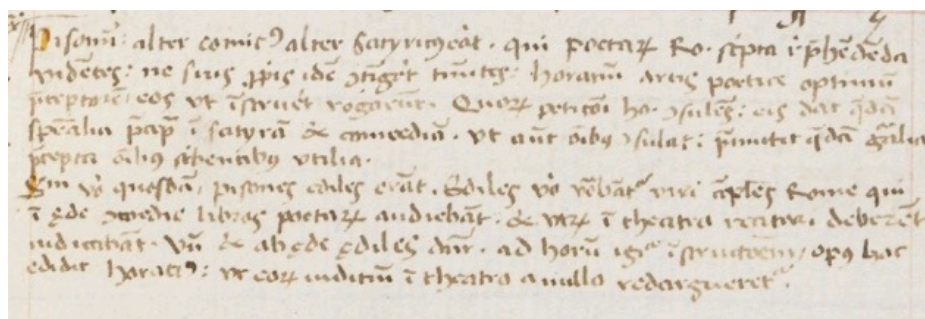 Pisonũ: alter comicꝰ alter Satyricꝰ erat. qui poetaꝝ Ro. scripta rep̃hẽdẽda
vidẽtes: ne suis ꝓpriis idẽ ꝯtĩgeret timẽtes: horatiũ artis poetice optimũ
p̃ceptorẽ, eos vt ĩstrueret rogarũt. Quoꝝ peticõi ho. ꝯsulẽs: eis dat q̃dã
sp̃ealia p̃cepta ĩ satyrã & cõmediã. vt aũt oĩbꝰ ꝯsulat: p̃mittit q̃dã gñalia
p̃cepta oĩbus scribentibꝰ vtilia.
Sm̃ v̊o quosdã, pisones ediles erãt. Ediles v̊o vocabãt᷑ viri ãples Rome qui
ĩ ęde ꝯmedie libros poetaꝝ audiebãt. & vtꝝ ĩ theatro recitari deberẽt
iudicabãt. vñ & ab ęde ędiles dñr. ad horũ igr̃ ĩstructõem, opꝰ hoc
edidit horatiꝰ: vt eoꝝ iuditiũ ĩ theatro a nullo redargueret᷑.